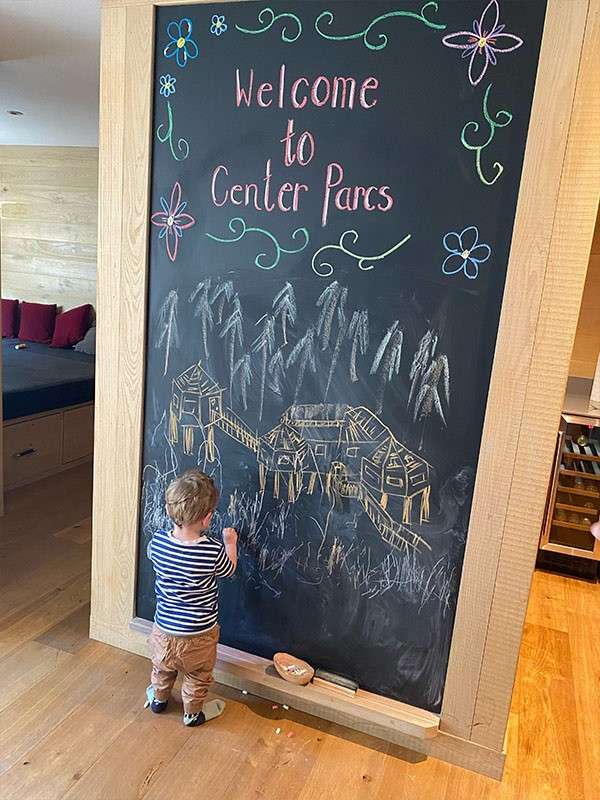 Welcome
to
Center Parcs